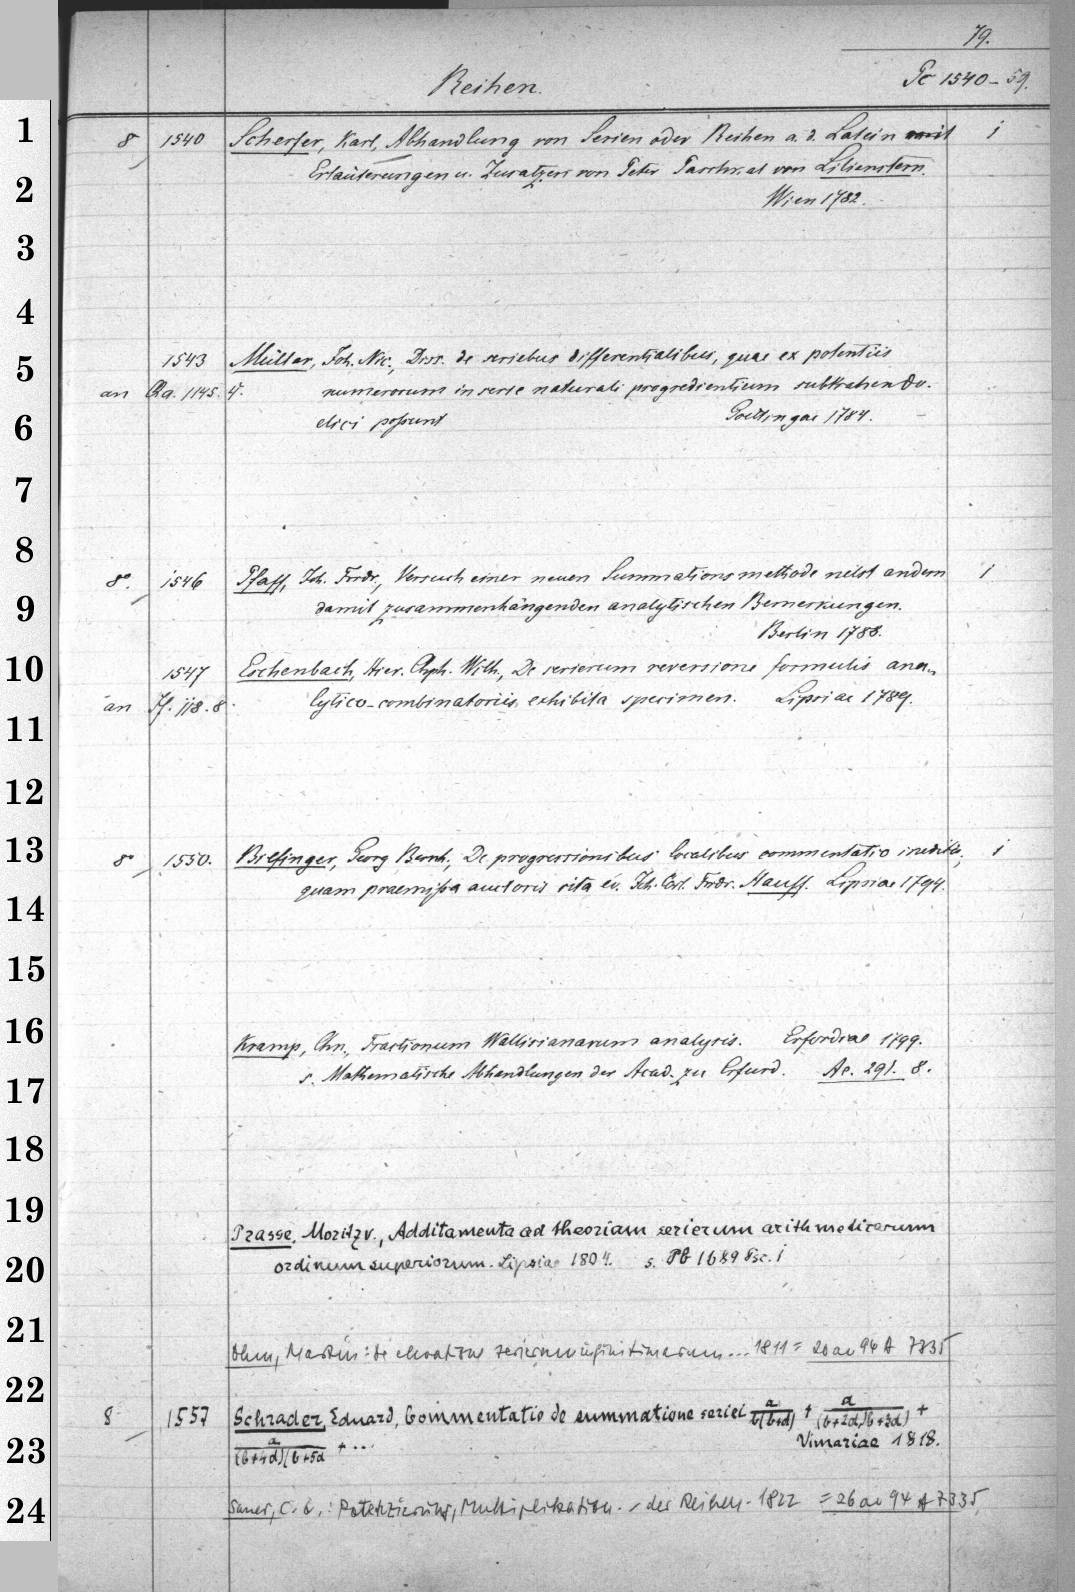 79.
Reihen.
Pc 1540-59.
1
8 1540 Scherfer, Karl, Abhandlung von Serien oder Reihen a. d. Latein mit 1
2
Erläuterungen u. Zusätzen von Peter von Lilienstern.
Wien 1782.
3
4
5
1543 Müller, Joh. Nic., Diss. de seriebus differentialibus, quae ex potentiis
an Qa. 1145. 4. numerorum in serie naturali progredientium subtrahendo
6
elici possunt Goettingae 1784.
7
8
8°. 1546 Pfaff, Joh. Frdr., Versuch einer neuen Summationsmethode nebst andern 1
9
damit zusammenhängenden analytischen Bemerkungen.
Berlin 1788.
10
1547 Eschenbach, Hier. Chph. Wilh., De serierum reversione formulis ana-
an Jf. 118. 8. lytico-combinatoriis exhibita specimen. Lipsiae 1789.
11
12
13
8° 1550. Bilfinger, Georg Bernh., De progressionibus localibus commentatio inedita, 1
14
quam praemissa auctoris vita ed. Joh. Carl Frdr. Hauff. Lipsiae 1794.
15
16
Kramp, Chn., Fractionum Wallisianarum analysis. Erfordiae 1799.
17
s. Mathematische Abhandlungen der Acad. zu Erfurd. Ac. 291. 8.
18
19
Prasse, Moritz v., Additamenta ad theoriam serierum arithmeticarum
20
ordinum superiorum. Lipsiae 1804. s. Pb 1689
21
Ohm, Martin: de elevatione serierum infinitinarum... 1811 = 20 an 94 A 7335
22
8 1557 Schrader, Eduard, Commentatio de summatione seriei a/b(b+d) + a/(b+2d)(b+3d) +
23
a/(b+4d)(b+5d + ... Vimariae 1818.
24
Potenzierung, Multiplikation .. der Reihen. 1822 = 26 an 94 A 7335